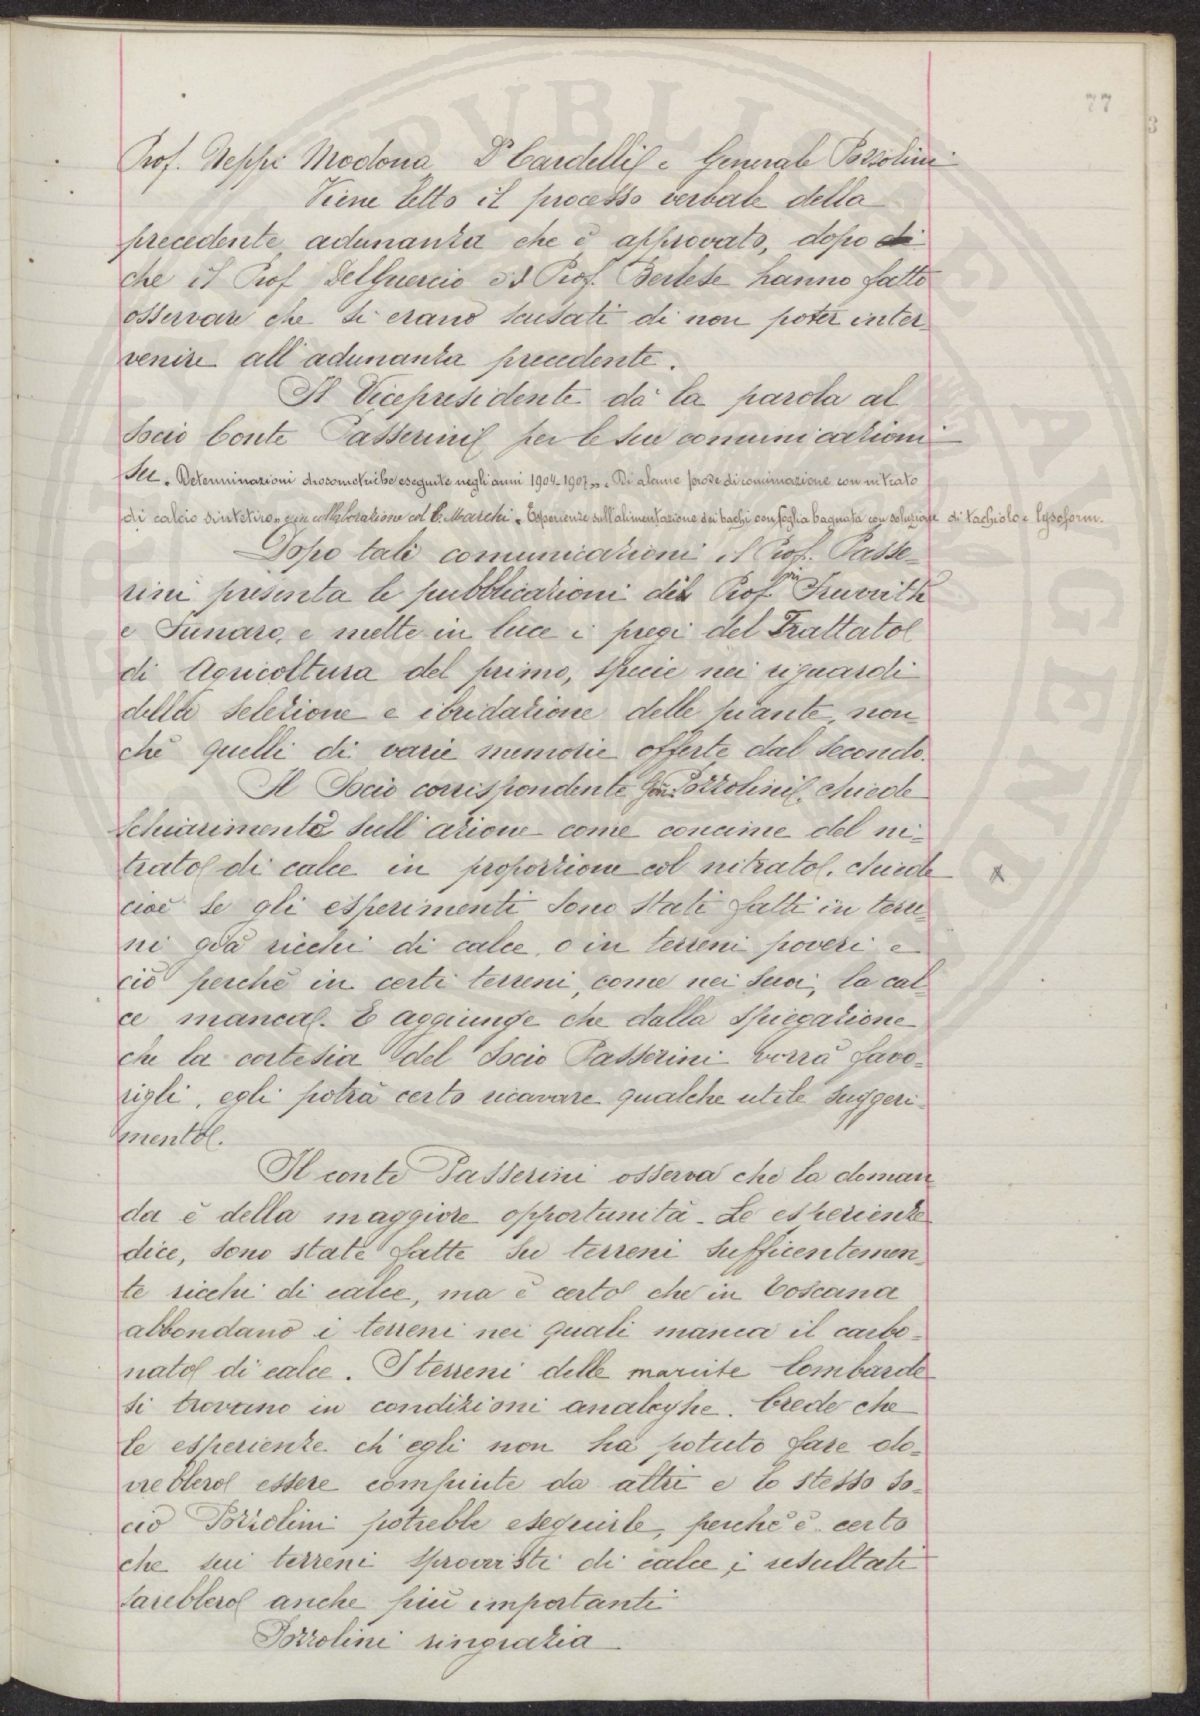 77
Prof. Neppi Modona, Dr Cardelli e Generale Pozzolini
Viene letto il processo verbale della
precedente adunanza che è approvato, dopo
che il Prof DelGuercio ed Prof. Berlese hanno fatto
osservare che si erano scusati di non poter inter-
venire all'adunanza precedente.
Il Vicepresidente dà la parola al
Socio Conte Passerini per le sue comunicazioni
su "Determinazioni drosometriche eseguite negli anni 1904-1907" "Di alcune prove di concimazione con nitrato
di calcio sintetico" e in collaborazione col C. Marchi "Esperienze sull'alimentazione dei bachi con foglia bagnata con soluzione di tachiolo e lysoform.
Dopo tali comunicazioni il Prof. Passe-
rini presenta le pubblicazioni del Prof Fruwirth
e Funaro, e mette in luce i pregi del Trattato
di Agricoltura del primo, specie nei riguardi
della selezione e ibridazione delle piante, non-
chè quelli di varie memorie offerte dal secondo.
Il Socio corrispondente Gen. Pozzolini, chiede
schiarimento sull'azione come concime del ni-
trato di calce in proporzione col nitrato, chiede
cioè se gli esperimenti sono stati fatti in terre-
ni già ricchi di calce, o in terreni poveri e
ciò perchè in certi terreni, come nei suoi, la cal-
ce manca. E aggiunge che dalla spiegazione
che la cortesia del Socio Passerini vorrà favo-
rirgli, egli potrà certo ricavare qualche utile suggeri-
mento.
Il conte Passerini osserva che la doman
da è della maggiore opportunità. Le esperienze
dice, sono state fatte su terreni sufficentemen
te ricchi di calce, ma è certo che in Toscana
abbondano i terreni nei quali manca il carbo-
nato di calce. I terreni delle marcite lombarde
si trovano in condizioni analoghe. Crede che
le esperienze ch'egli non ha potuto fare do-
vrebbero essere compiute da altri e lo stesso So-
cio Pozzolini potrebbe eseguirle, perchè è certo
che sui terreni sprovvisti di calce, i resultati
sarebbero anche più importanti
Pozzolini ringrazia